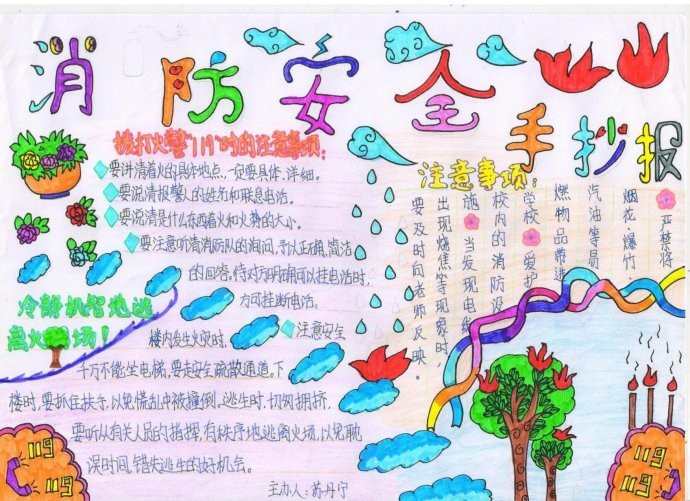 消防安全
手抄报
拨打火警“119”时的注意事项:
要讲清着火的具体地点,一定要具体、详细。
要说清报警人的姓名和联系电话。
要说清是什么东西着火和火势的大小。
要注意听清消防队的询问,予以正确,简洁
的回答,待对方明确可以挂电话时,
方可挂断电话。
冷静机智地逃
离火场!
注意安全
楼内发生火灾时,
千万不能坐电梯,要走安全疏散通道。下
楼时,要抓住扶手,以免慌乱中被撞倒。逃生时,切勿拥挤,
要听从有关人员的指挥,有秩序地逃离火场,以免耽
误时间,错失逃生的好机会。
主办人:苏丹宁
注意事项:
严禁将
烟花、爆竹
汽油等易
燃物品带进
学校 爱护
校内的消防设
施 当发现电线
出现烧焦等现象时
要及时向老师反映。
119
119
119
119